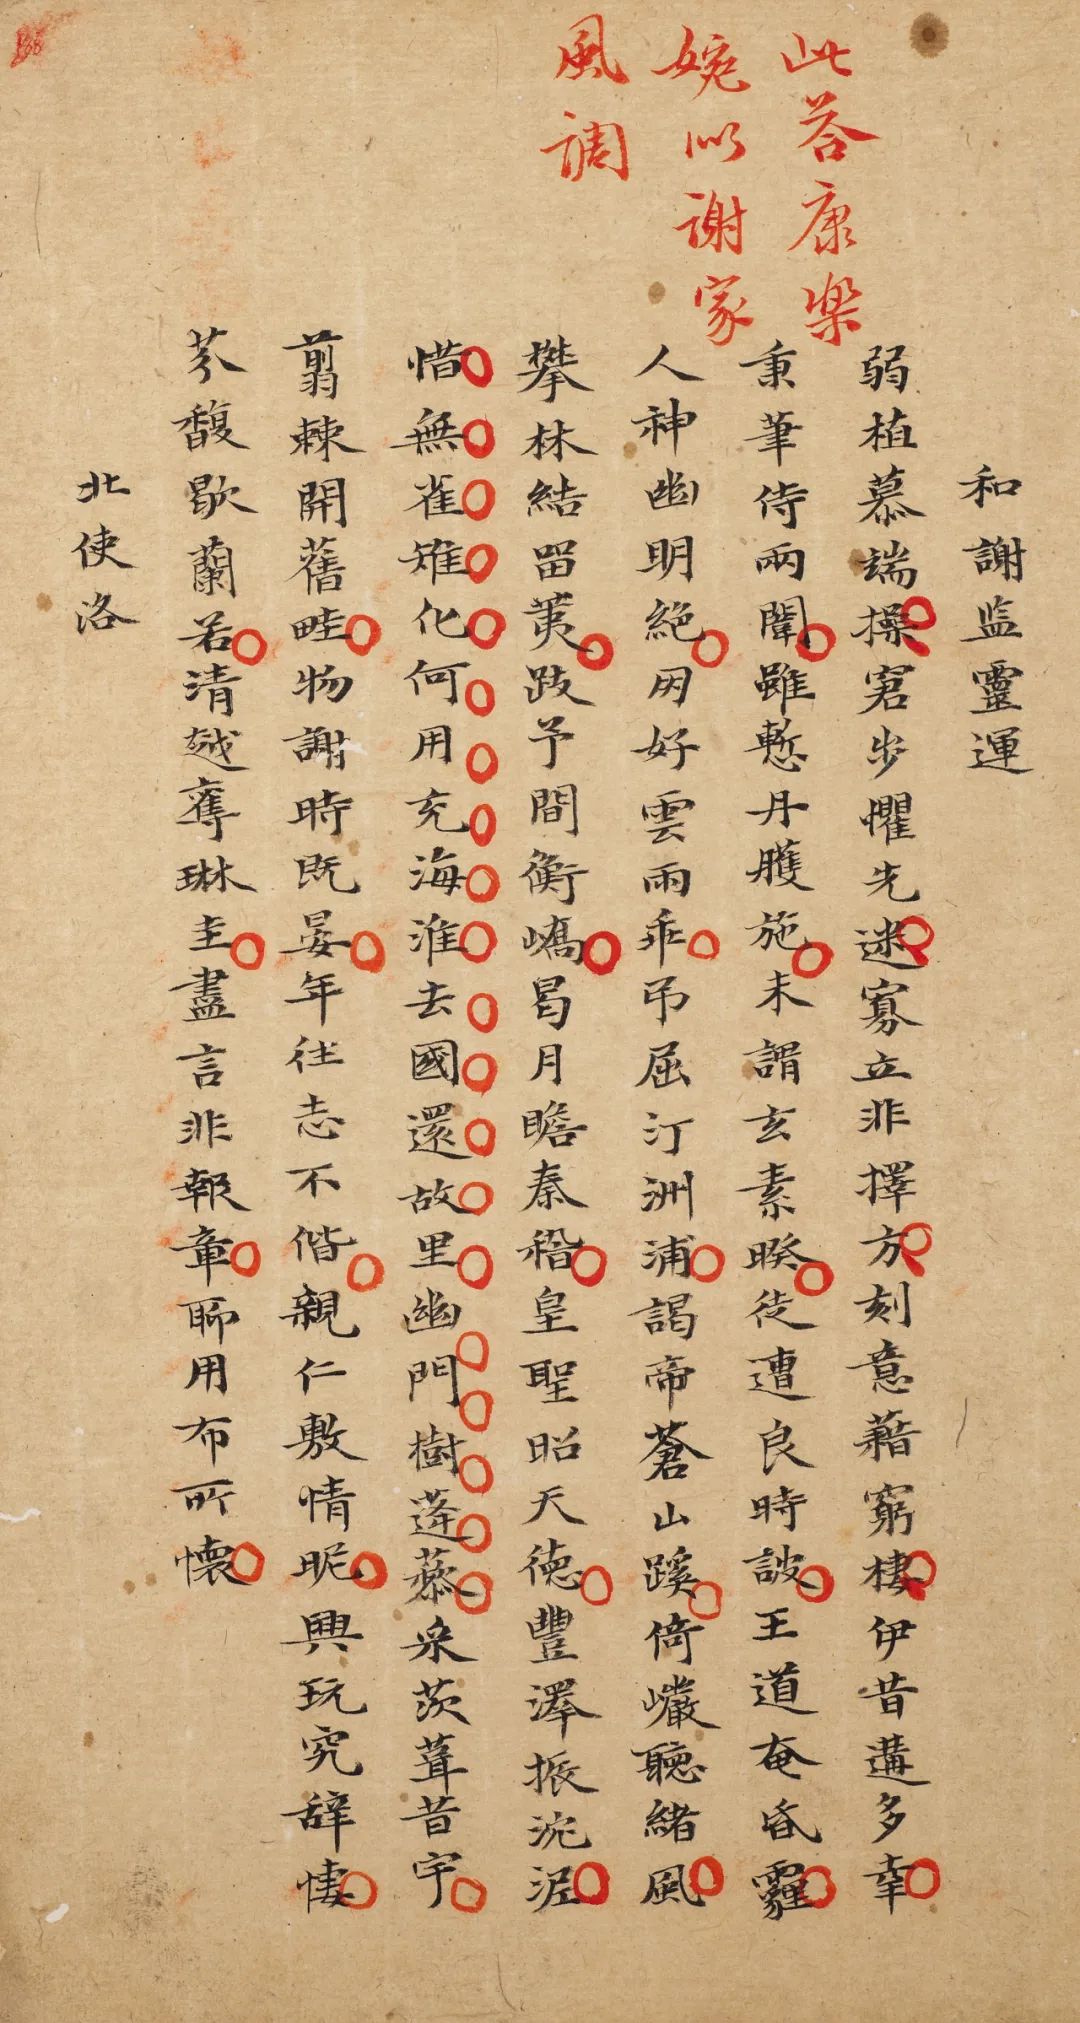 此荅康樂
婉似謝家
風調
和謝監靈運
弱植慕端操窘步懼先迷寡立非擇方刻意藉窮棲伊昔遘多幸
秉筆侍兩闈雖慙丹雘施未謂玄素睽徒遭良時詖王道奄昏霾
人神幽明絕朋好雲雨乖弔屈汀洲浦謁帝蒼山蹊倚巖聽緒風
攀林結留荑跂予間衡嶠曷月瞻秦稽皇聖昭天德豐澤振沈泥
惜無雀雉化何用充海淮去國還故里幽門樹蓬藜采茨葺昔宇
翦棘開舊畦物謝時既晏年往志不偕親仁敷情昵興玩究辭悽
芬馥歇蘭若清越奪琳圭盡言非報章聊用布所懷
北使洛